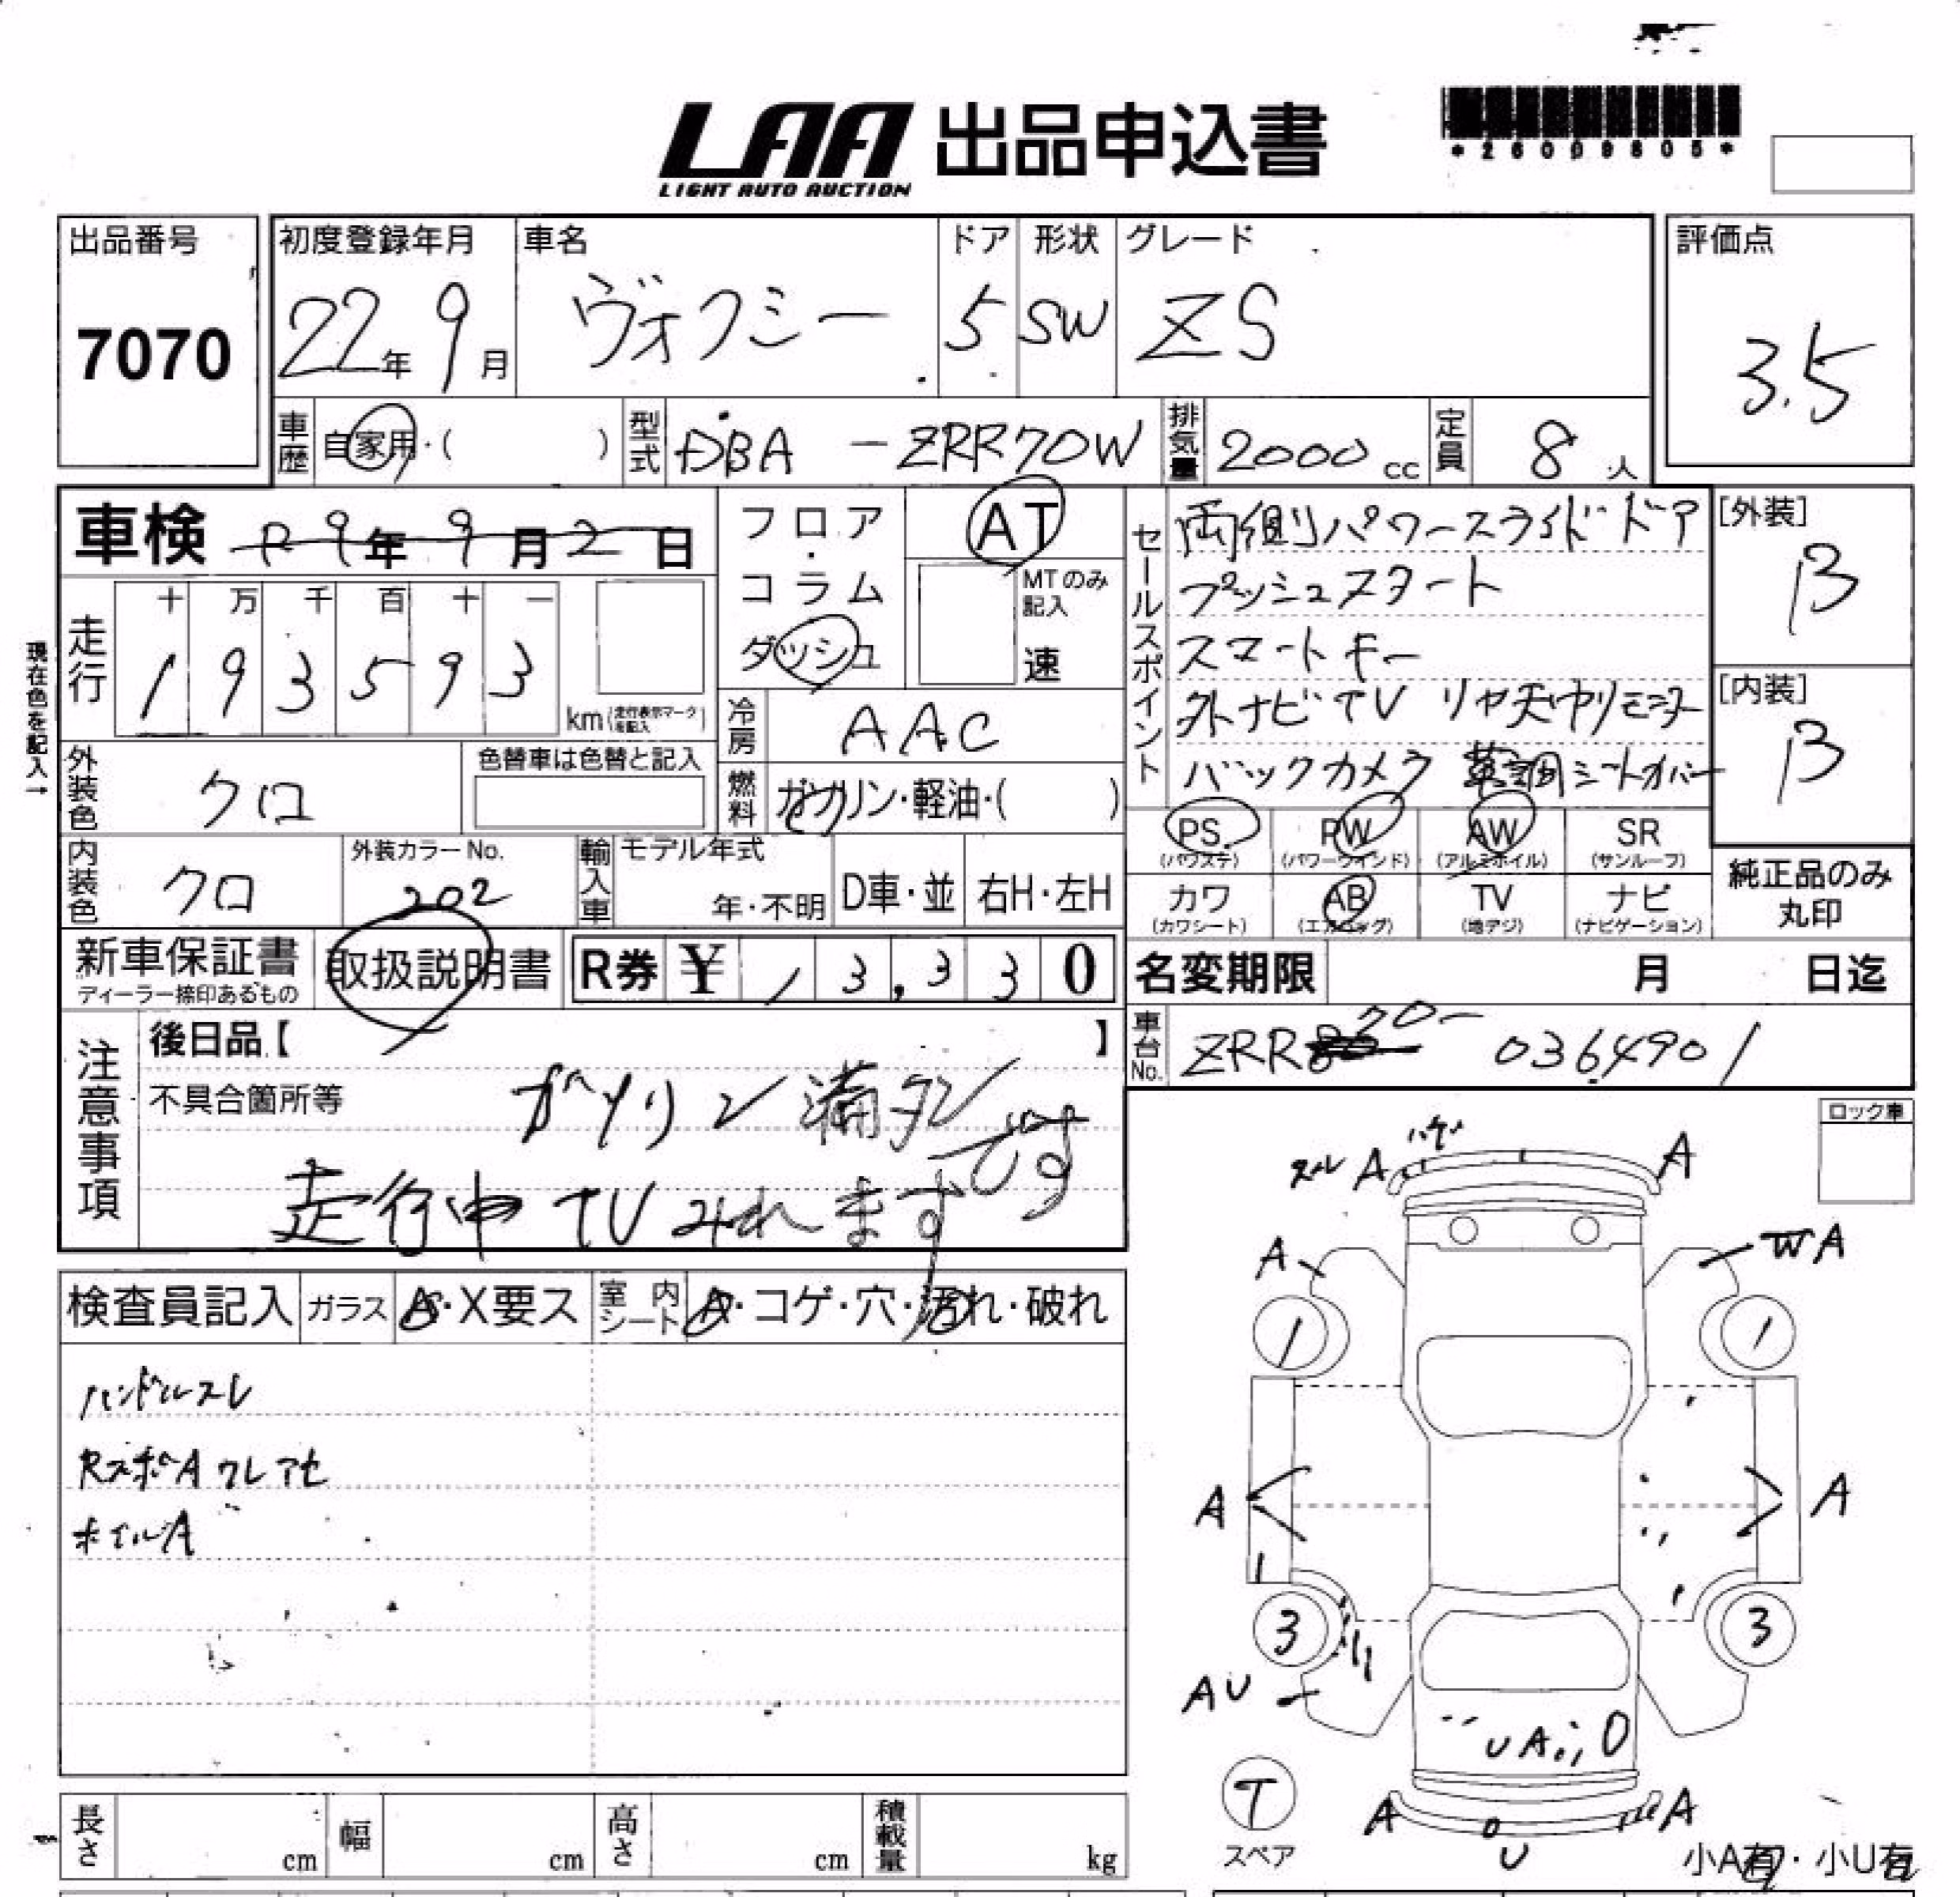 LAA 出品申込書
LIGHT AUTO AUCTION
*26009805*
出品番号
7070
初度登録年月
22年 9月
車名
ヴォクシー
ドア
5
形状
SW
グレード
ZS
評価点
3.5
車歴 自家用・( )
型式 DBA - ZRR70W
排気量 2000 cc
定員 8人
車検 R9年9月2日
フロア・コラム ダッシュ
AT
MTのみ記入
速
走行
十 万 千 百 十 一
1 9 3 5 9 3
km(走行表示マークを記入)
現在色を記入→
冷房 AAC
外装色 クロ
色替車は色替と記入
燃料 ガソリン・軽油・( )
内装色 クロ
外装カラーNo.
202
輸入車 モデル年式
年・不明
D車・並
右H・左H
セールスポイント
両側パワースライドドア
プッシュスタート
スマートキー
外ナビTV リヤ天井モニター
バックカメラ 革調シートカバー
[外装]
B
[内装]
B
PS
(パワステ)
PW
(パワーウインド)
AW
(アルミホイル)
SR
(サンルーフ)
カワ
(カワシート)
AB
(エアバッグ)
TV
(地デジ)
ナビ
(ナビゲーション)
純正品のみ
丸印
新車保証書
ディーラー捺印あるもの
取扱説明書
R券 ¥ 13,330
名変期限 月 日迄
車台No. ZRR80 70- 0364901
注意事項
後日品【 】
不具合箇所等
ガソリン満タンです
走行中TVみれます
検査員記入
ガラス A・X要ス
室内シート A・コゲ・穴・汚れ・破れ
ハンドルスレ
RスポA クレアセ
ホイルA
ロック車
スレ A ハゲ A
A WA
1 1
A A
3 3
AU
UA
A A
U
T
スペア
小A有・小U有
長さ cm
幅 cm
高さ cm
積載量 kg